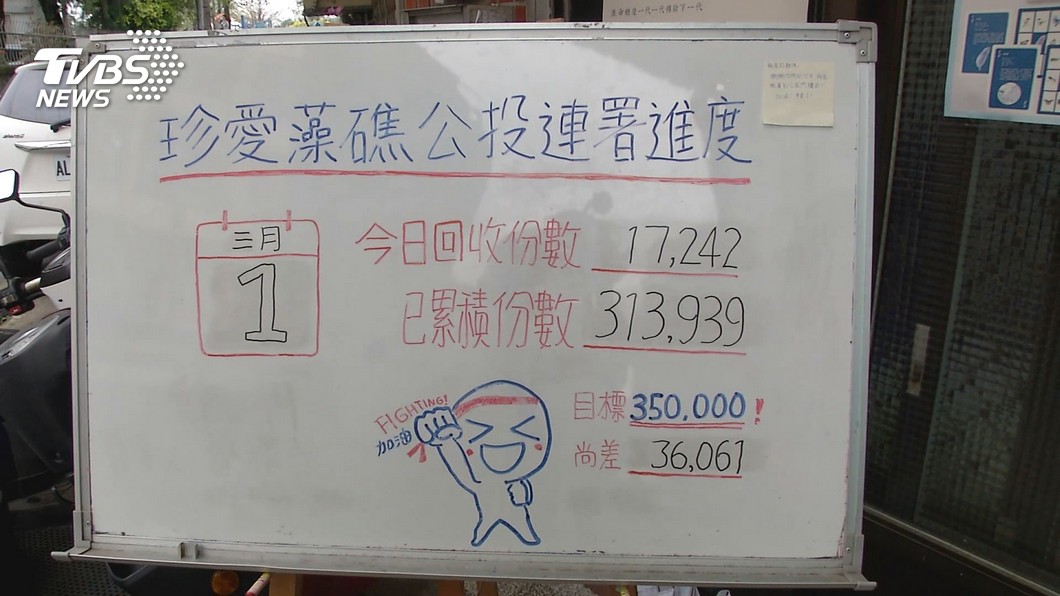 生命轉變一代一代移給下一代
TVBS
NEWS
AL
珍愛藻礁公投連署進度
三月
1
今日回收份數 17,242
已累積份數 313,939
FIGHTING!
加油
目標 350,000!
尚差 36,061